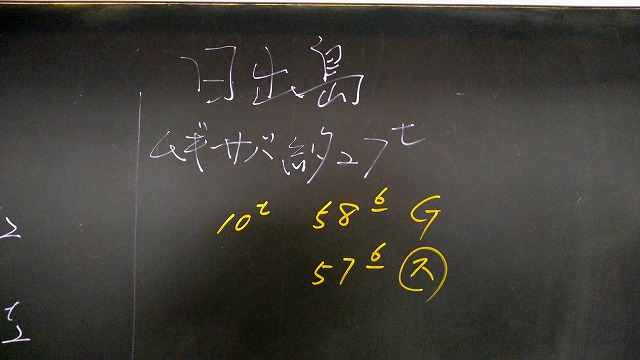 日出島
ムギサバ 約27t
10t 58 6 G
57 6 ス
2
t
2